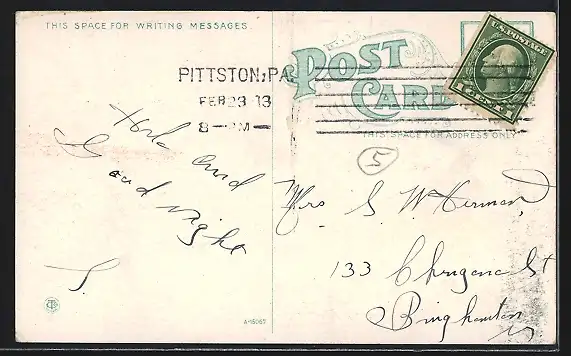 THIS SPACE FOR WRITING MESSAGES
POST CARD
THIS SPACE FOR ADDRESS ONLY
U.S. POSTAGE
1 CENT 1
PITTSTON, PA.
FEB 23 13
8 - PM -
5
and
Good night
S.
Mrs. S. W. Herman,
133 St
Binghamton
A-15067